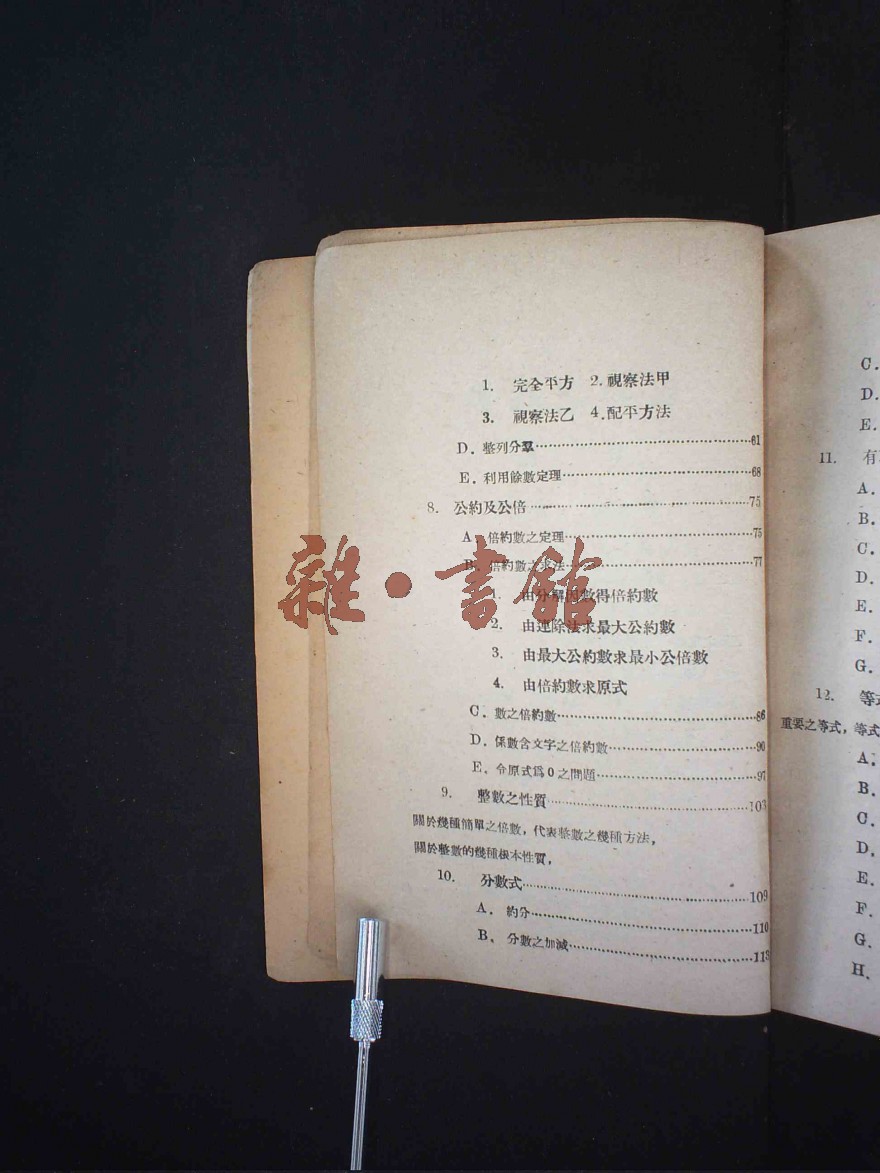 1. 完全平方 2. 視察法甲
3. 視察法乙 4. 配平方法
D. 整列分羣……61
E. 利用餘數定理……68
8. 公約及公倍……75
A. 倍約數之定理……75
B. 倍約數之求法……77
1. 由分解因數得倍約數
2. 由連除法求最大公約數
3. 由最大公約數求最小公倍數
4. 由倍約數求原式
C. 數之倍約數……86
D. 係數含文字之倍約數……90
E. 令原式爲0之問題……97
9. 整數之性質……103
關於幾種簡單之倍數，代表整數之幾種方法，
關於整數的幾種根本性質，
10. 分數式……109
A. 約分……110
B. 分數之加減……113
雜·書館
C.
D.
E.
11. 有
A.
B.
C.
D.
E.
F.
G.
12. 等
重要之等式，等式
A.
B.
C.
D.
E.
F.
G.
H.